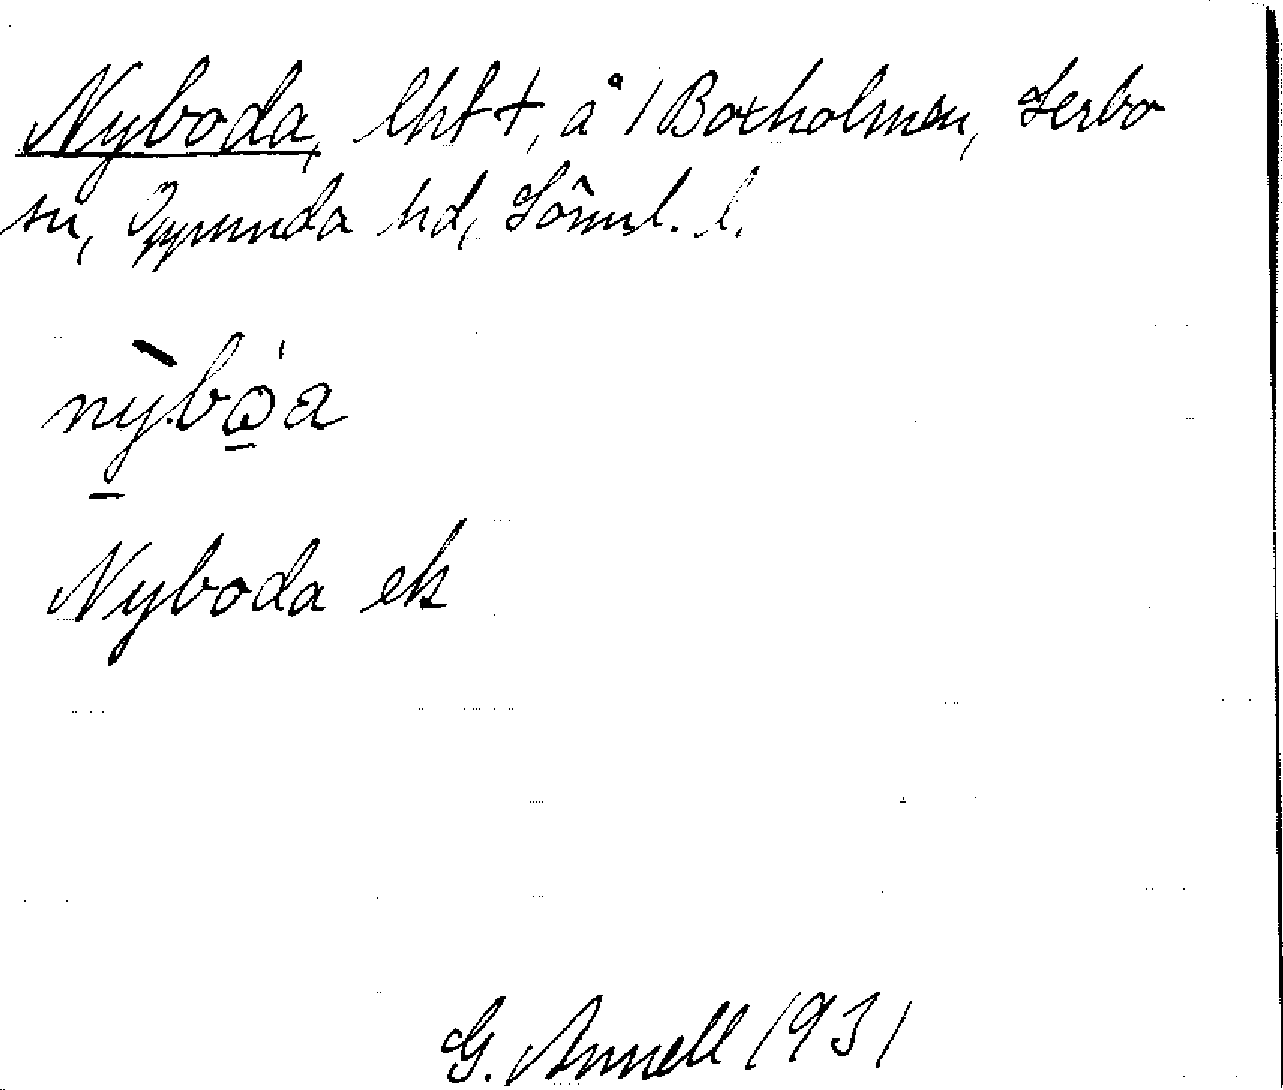 Nyboda, lht †, å 1 Boxholmen, Lerbo
sn, Oppunda hd, Söml. l.
nỳbo̱a
Nyboda ek
G. Annell 1931